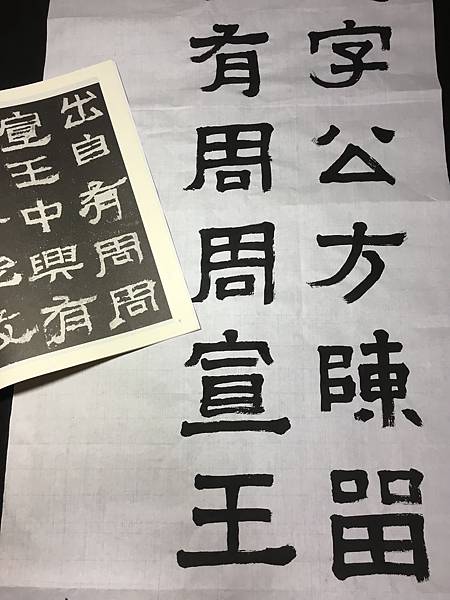 字公方陳留
有周周宣王
出自有周周
宣王中興有